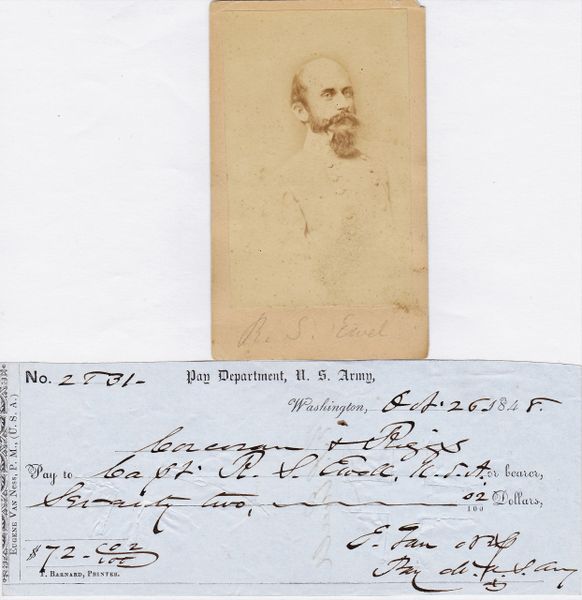 R. S. Ewel
No. 2831-
Pay Department, U. S. Army,
Washington, Oct. 26. 1848.
Corcoran & Riggs
Pay to Capt. R. S. Ewell, U.S.A. or bearer,
Seventy two, 02/100 Dollars,
$72-02/100
E. Van Ness
Pay Mr. U.S. Army
T. BARNARD, PRINTER.
EUGENE VAN NESS, P. M., (U. S. A.)